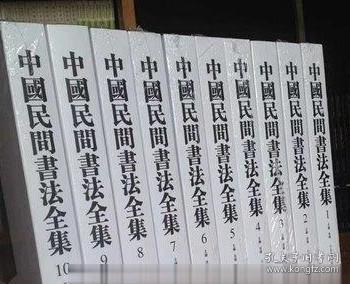 中國民間書法全集 10
中國民間書法全集 9
中國民間書法全集 8
中國民間書法全集 7
中國民間書法全集 6
中國民間書法全集 5
中國民間書法全集 4
中國民間書法全集 3
中國民間書法全集 2
中國民間書法全集 1
孔夫子旧书网
www.kongfz.com